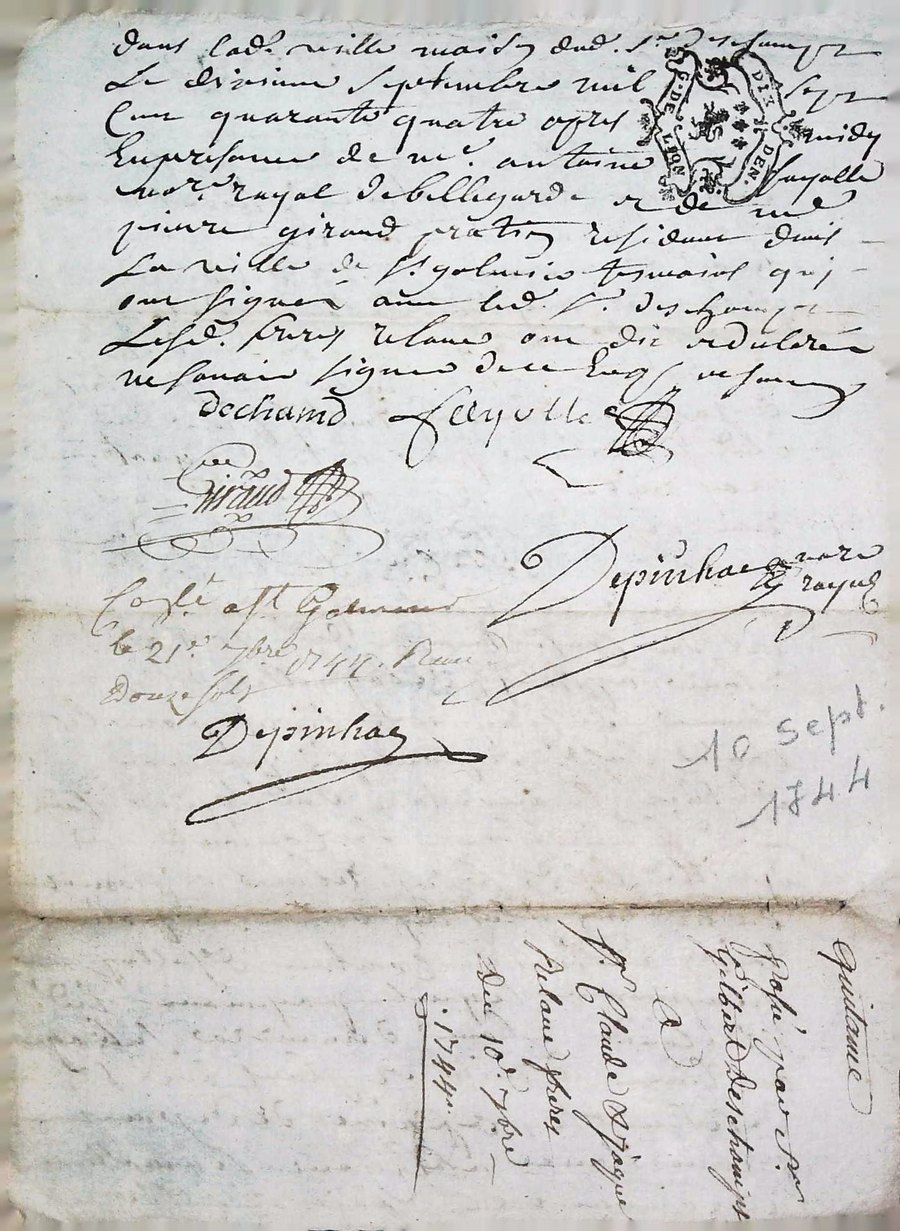 dans lad. ville maison dud. sr. Deschamps
Le dixieme septembre mil sept
Cent quarante quatre apres midy
En presence de me. antoine fayolle
nore. royal de bellegarde et de me
pierre giraud praticien residant dans
La ville de st. galmier temoins qui
ont signé avec led. sr. deschamps
Lesd. freres relave ont dit et declaré
ne scavoir signer de ce Enq
dechamp fayolle
Giraud
Depinhac nore royal
DIX DEN.
G. DE LION
Conlé. a St Galmier
le 21e. 7bre 1744. Recu
Douze sols
Depinhac
10 sept.
1744
Quitance
passé par sr
Gilbert Deschamps
a
sr. Claude & Jaque
Relave freres
du 10e. 7bre
1744.